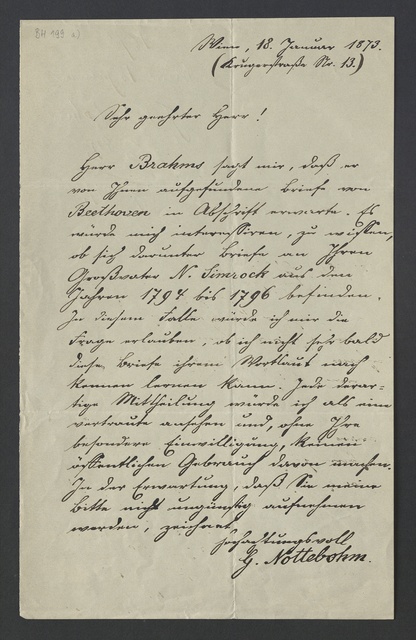 BH 199 a)
Wien, 18. Januar 1873.
(Krugerstraße Nr. 13.)
Sehr geehrter Herr!
Herr Brahms sagt mir, daß er
von Ihnen aufgefundene Briefe von
Beethoven in Abschrift erwarte. Es
würde mich interessiren, zu wissen,
ob sich darunter Briefe an Ihren
Großvater N. Simrock aus den
Jahren 1794 bis 1796 befinden.
In diesem Falle würde ich mir die
Frage erlauben, ob ich nicht sehr bald
diese Briefe ihrem Wortlaut nach
kennen lernen kann. Jede derar-
tige Mittheilung würde ich als eine
vertraute ansehen und, ohne Ihre
besondere Einwilligung, keinen
öffentlichen Gebrauch davon machen.
In der Erwartung, daß Sie meine
Bitte nicht ungünstig aufnehmen
werden, zeichnet
hochachtungsvoll
G. Nottebohm.